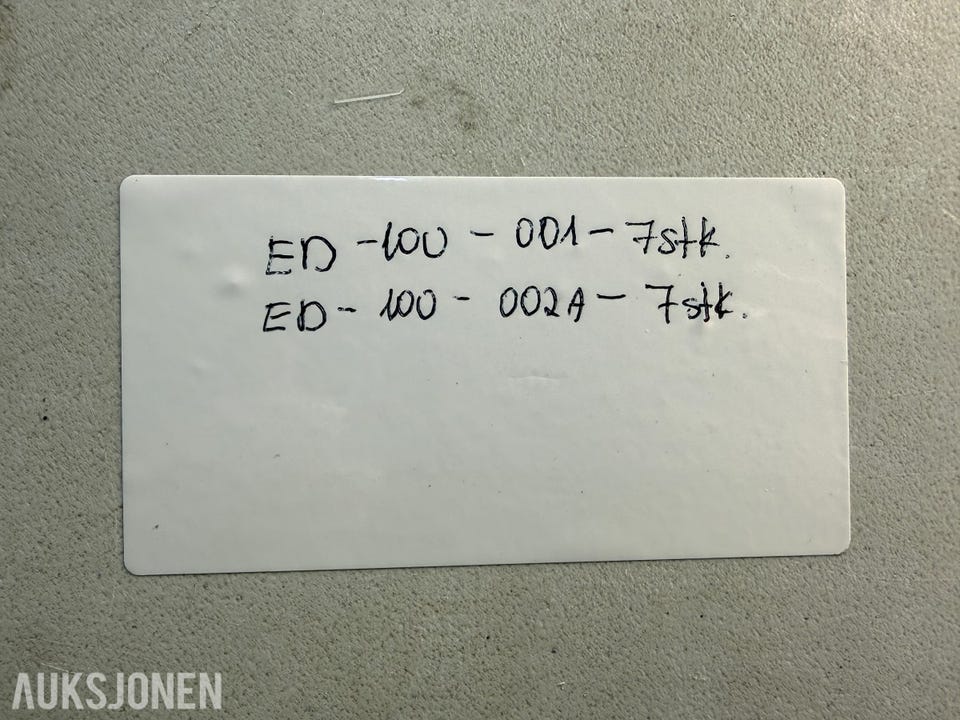 ED-100-001-7stk.
ED-100-002A-7stk.
AUKSJONEN